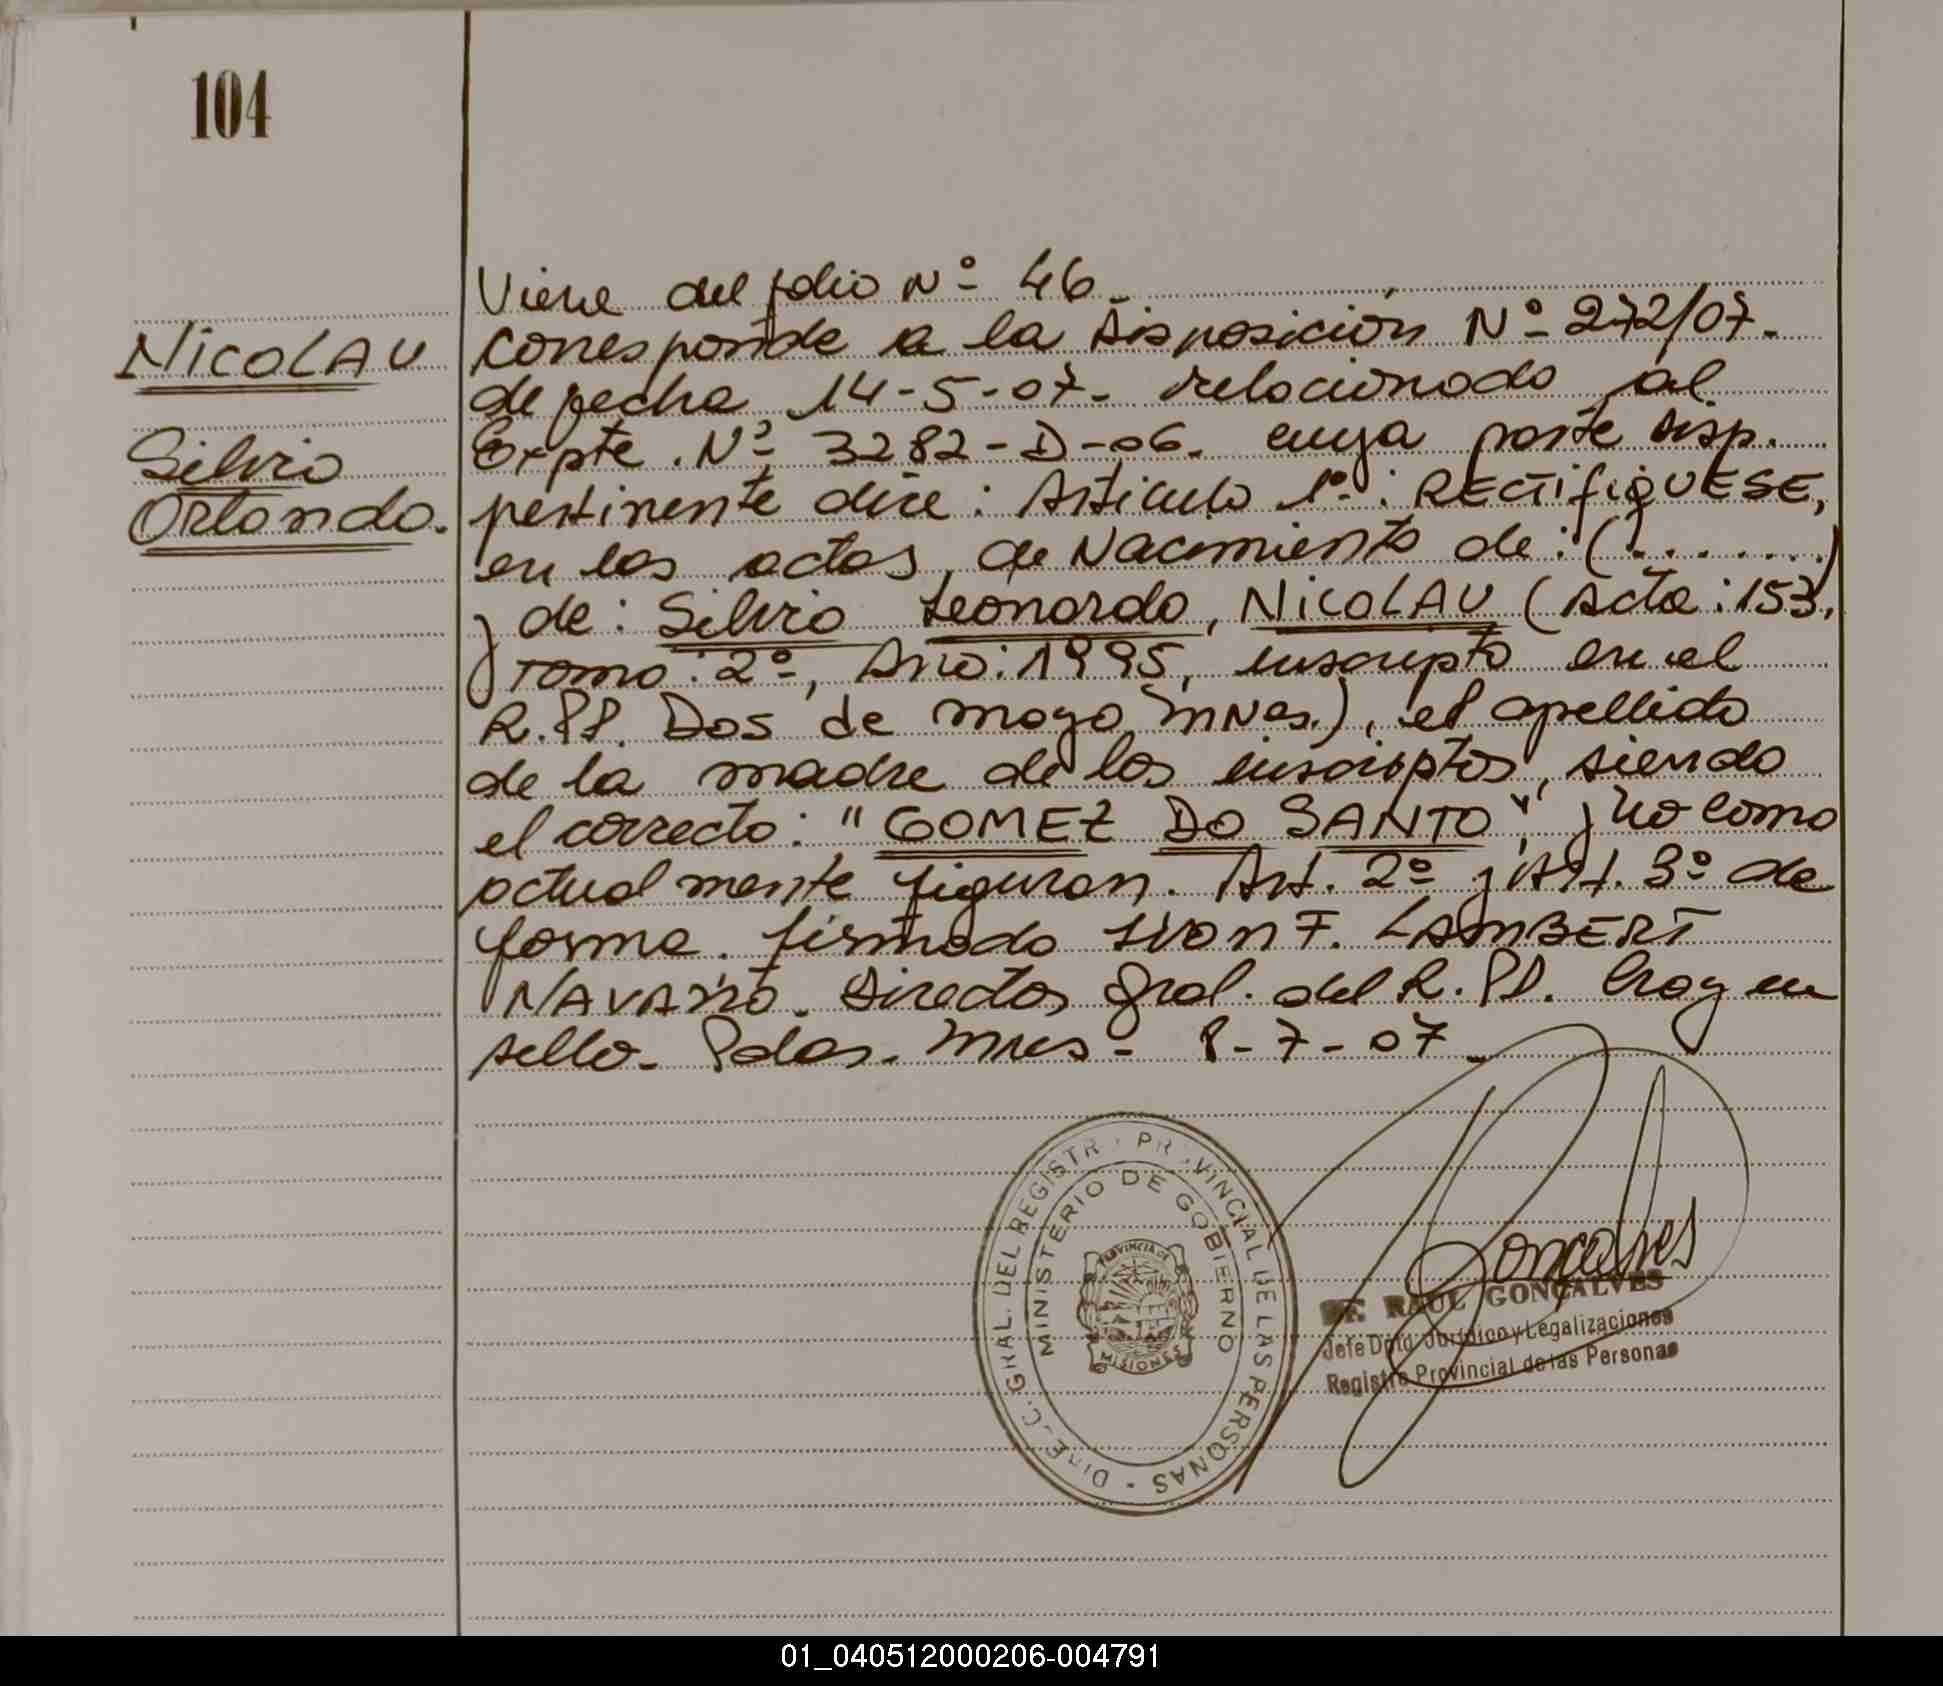 104
NICOLAU
Silvio
Orlando.
Viene del folio Nº 46.
Corresponde a la Disposición Nº 272/07.
de fecha 14-5-07. relacionado al
Expte. Nº 3282-D-06. cuya parte disp.
pertinente dice: Articulo 1º: RECTIFIQUESE,
en las actas, de Nacimiento de: (........)
y de: Silvio Leonardo, NICOLAU (Acta: 153,
Tomo: 2º, Año: 1995, inscripto en el
R.PP. Dos de Mayo Mnes.), el apellido
de la madre de los inscriptos, siendo
el correcto: "GOMEZ DO SANTO", y no como
actualmente figuran. Art. 2º y Art. 3º de
forma. firmado Ivan F. LAMBERT
NAVARRO. Director Gral. del R.PP. Hay un
sello. Pdas. Mnes. 8-7-07
DIR. GRAL. DEL REGISTRO PROVINCIAL DE LAS PERSONAS
MINISTERIO DE GOBIERNO
PROVINCIA DE
MISIONES
Goncalves
Dr. RAUL GONÇALVES
Jefe Dpto. Jurídico y Legalizaciones
Registro Provincial de las Personas
01_040512000206-004791